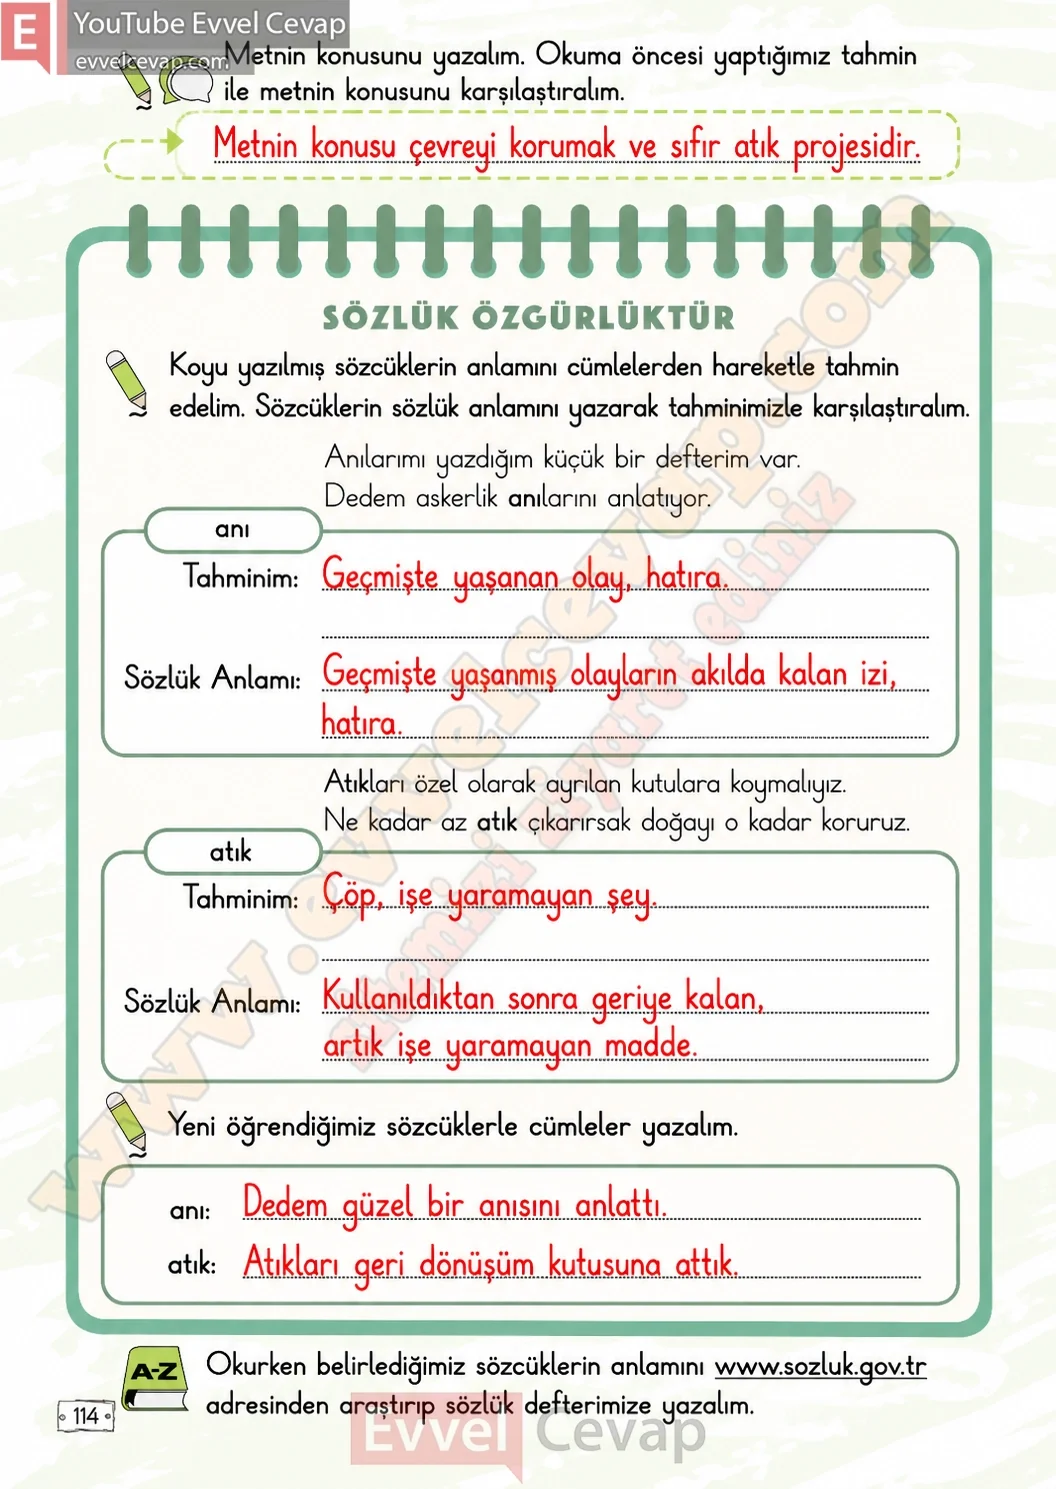 E YouTube Evvel Cevap
evvelcevap.com
Metnin konusunu yazalım. Okuma öncesi yaptığımız tahmin
ile metnin konusunu karşılaştıralım.
Metnin konusu çevreyi korumak ve sıfır atık projesidir.
SÖZLÜK ÖZGÜRLÜKTÜR
Koyu yazılmış sözcüklerin anlamını cümlelerden hareketle tahmin
edelim. Sözcüklerin sözlük anlamını yazarak tahminimizle karşılaştıralım.
Anılarımı yazdığım küçük bir defterim var.
Dedem askerlik anılarını anlatıyor.
anı
Tahminim: Geçmişte yaşanan olay, hatıra.
Sözlük Anlamı: Geçmişte yaşanmış olayların akılda kalan izi,
hatıra.
Atıkları özel olarak ayrılan kutulara koymalıyız.
Ne kadar az atık çıkarırsak doğayı o kadar koruruz.
atık
Tahminim: Çöp, işe yaramayan şey.
Sözlük Anlamı: Kullanıldıktan sonra geriye kalan,
artık işe yaramayan madde.
Yeni öğrendiğimiz sözcüklerle cümleler yazalım.
anı: Dedem güzel bir anısını anlattı.
atık: Atıkları geri dönüşüm kutusuna attık.
A-Z
Okurken belirlediğimiz sözcüklerin anlamını www.sozluk.gov.tr
adresinden araştırıp sözlük defterimize yazalım.
114
Evvel Cevap
www.evvelcevap.com
sitemizi ziyaret ediniz